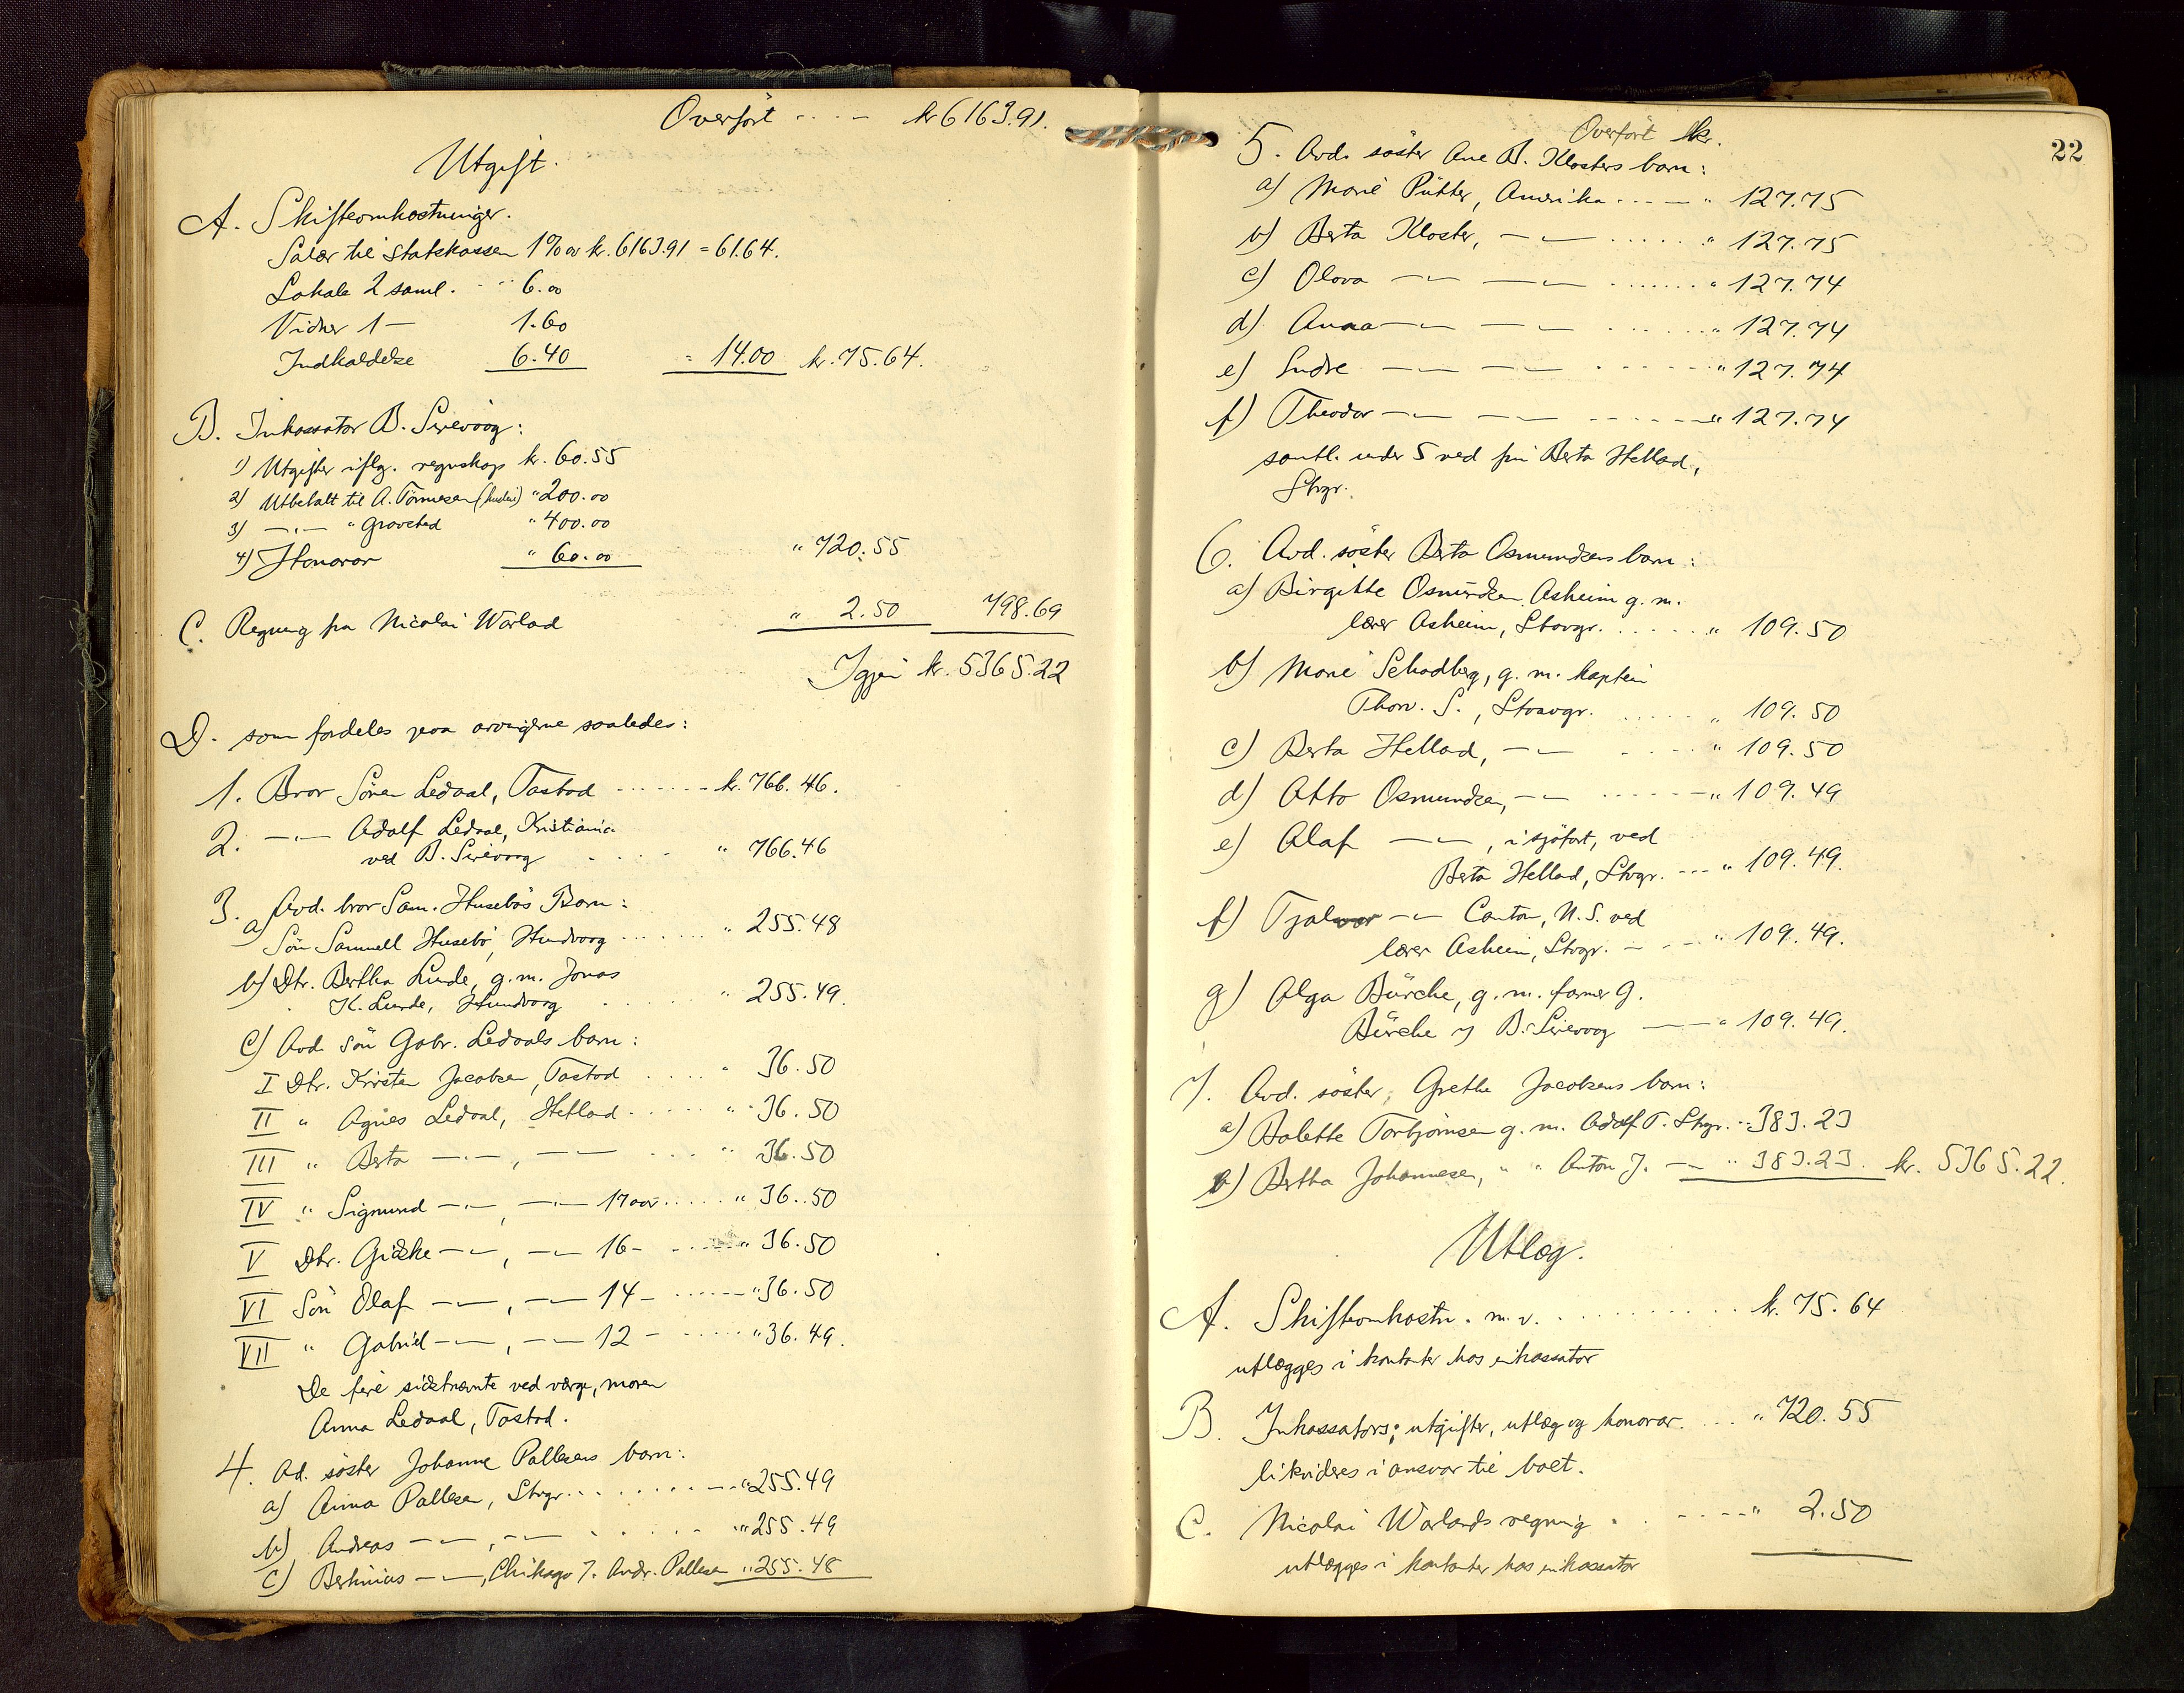 Overført - - - - kr 6163.91.
Utgift.
A. Skifteomkostninger.
Salær til statskassen 1% av kr. 6163.91 = 61.64.
Lokale 2 saml. - - 6.00
Vidner 1 — 1.60
Indkaldelse 6.40 = 14.00 kr. 75.64.
B. Inkassator B. Sirevaag:
1) Utgifter iflg. regnskap kr. 60.55
2) Utbetalt til A. Tønnesen " 200.00
3) —"— " Gravsted " 400.00
4) Honorar " 60.00 " 720.55
C. Regning fra Nicolai Warland " 2.50 798.69
Igjen kr. 5365.22
D. som fordeles paa arvingerne saaledes:
1. Bror Sören Ledaal, Tastad - - - - - - kr. 766.46.
2. —"— Adolf Ledaal, Kristiania
ved B. Sirevaag . . . . " 766.46
3. Avd. bror Sam. Husebös Barn:
a) Sön Samuell Husebö, Hundvaag . . . . . . " 255.48
b) Dtr. Bertha Lunde, g.m. Jonas
K. Lunde, Hundvaag . . . . . " 255.49.
c) Avd. sön Gabr. Ledaals barn:
I Dtr. Kirsten Jacobsen, Tastad . . . . " 36.50
II " Agnes Ledaal, Hetland . . . . . " 36.50
III " Berta —"—, —"— . . . " 36.50
IV " Sigmund —"—, —"— 17 aar . . . . . " 36.50
V Dtr. Gidske —"—, —"— 16 - - - - - " 36.50
VI Sön Olaf —"—, —"— 14 - - - - - - " 36.50
VII " Gabriel —"—, —"— 12 - - - - - " 36.49.
De fire sidstnævnte ved værge, moren
Anna Ledaal, Tastad.
4. Ad. söster Johanne Pallesens barn:
a) Anna Pallesen, Stvgr. . . . . . . . " 255.49
b) Andreas —"—, —"— . . . . . " 255.49
c) Bertinius —"—, Chikago 7. Andr. Pallesen " 255.48
22
Overført kr.
5. Avd. söster Ane B. Klosters barn:
a) Marie Pütter, Amerika - - - - " 127.75
b) Berta Kloster, —"— . . . . . " 127.75
c) Olava —"— —"— . . . . . . " 127.74
d) Anna —"— —"— . . . . . . " 127.74
e) Sudre —"— —"— . . . . . . " 127.74
f) Theodor —"— —"— - - - - - - " 127.74
samtl. under 5 ved fru Berta Hetland,
Stvgr.
6. Avd. söster Berta Osmundsens barn:
a) Birgitte Osmundsen Asheim g. m.
lærer Asheim, Stavgr. . . . . . " 109.50
b) Marie Schadberg, g. m. kaptein
Thorv. S., Stavgr. . . . . . " 109.50
c) Berta Hetland, —"— . . . . " 109.50
d) Otto Osmundsen, —"— . . . . . . " 109.49
e) Olaf —"—, i sjöfart, ved
Berta Hetland, Stvgr. - - - " 109.49.
f) Tjalvar —"— Canton, N.S. ved
lærer Asheim, Stvgr. - - - - " 109.49.
g) Olga Bürche, g. m. farmer G.
Bürche 7 B. Sirevaag —"— " 109.49.
7. Avd. söster, Grethe Jacobsens barn:
a) Balette Torbjörnsen g. m. Adolf T. Stvgr. - - 383.23
b) Bertha Johannesen, " " Anton J. —"— " 383.23. kr. 5365.22.
Utlæg.
A. Skifteomkostn. m. v. . . . . . . . . . . kr. 75.64
utlægges i kontanter hos inkassator
B. Inkassators utgifter, utlæg og honorar . . . " 720.55
likvideres i ansvar til boet.
C. Nicolai Warlands regning . . - - - - " 2.50
utlægges i kontanter hos inkassator